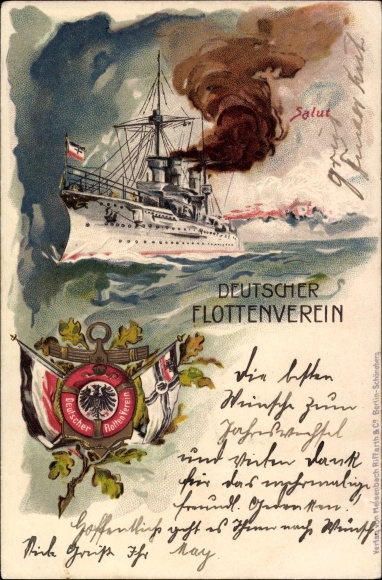 Salut
Gruss
DEUTSCHER
FLOTTENVEREIN
Deutscher Flotten Verein
Die besten
Wünsche zum
Jahreswechsel
und vielen Dank
für das mehrmalige
freundl. Gedenken!
Hoffentlich geht es Ihnen nach Wunsch
Viele Grüße Ihr May.
Verlag von Meisenbach Riffarth & Co. Berlin-Schöneberg